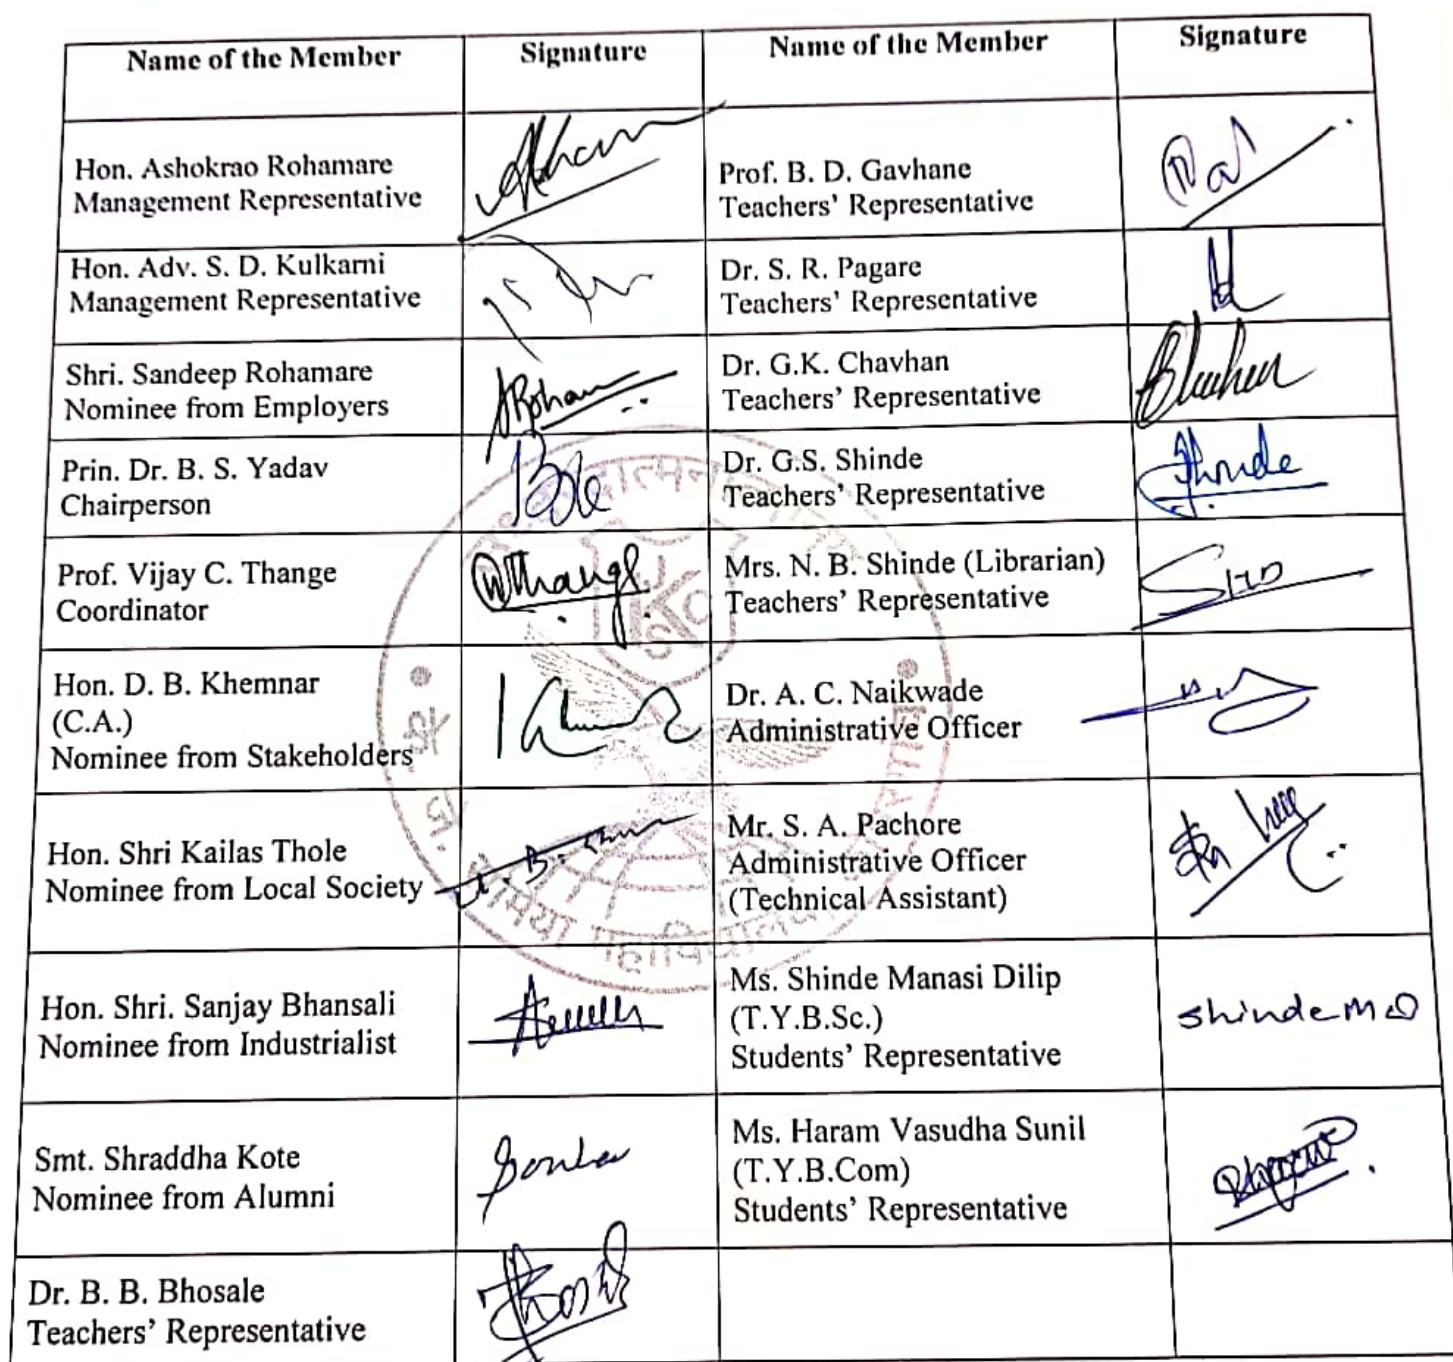 Name of the Member
Signature
Name of the Member
Signature
Hon. Ashokrao Rohamare
Management Representative
Prof. B. D. Gavhane
Teachers' Representative
Hon. Adv. S. D. Kulkarni
Management Representative
Dr. S. R. Pagare
Teachers' Representative
Shri. Sandeep Rohamare
Nominee from Employers
Dr. G.K. Chavhan
Teachers' Representative
Prin. Dr. B. S. Yadav
Chairperson
Dr. G.S. Shinde
Teachers' Representative
Shinde
Prof. Vijay C. Thange
Coordinator
Mrs. N. B. Shinde (Librarian)
Teachers' Representative
Hon. D. B. Khemnar
(C.A.)
Nominee from Stakeholders
Dr. A. C. Naikwade
Administrative Officer
Hon. Shri Kailas Thole
Nominee from Local Society
Mr. S. A. Pachore
Administrative Officer
(Technical Assistant)
Hon. Shri. Sanjay Bhansali
Nominee from Industrialist
Ms. Shinde Manasi Dilip
(T.Y.B.Sc.)
Students' Representative
Shinde M D
Smt. Shraddha Kote
Nominee from Alumni
Ms. Haram Vasudha Sunil
(T.Y.B.Com)
Students' Representative
Dr. B. B. Bhosale
Teachers' Representative